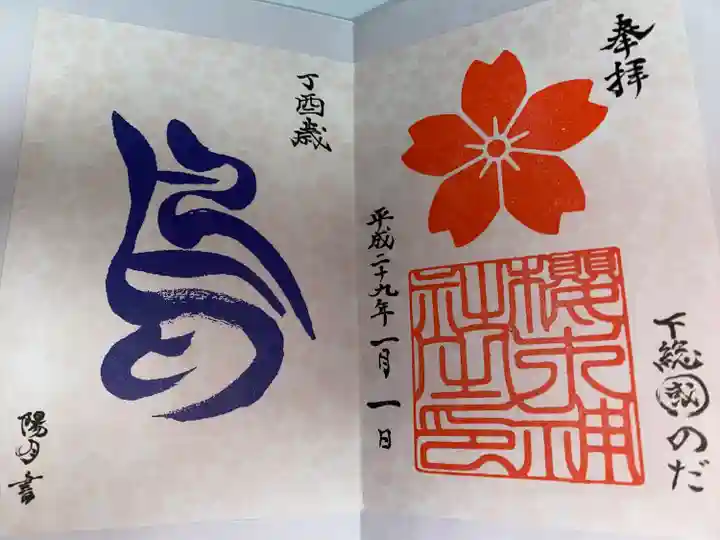 奉拝
下総國のだ
櫻木神社之印
平成二十九年一月一日
丁酉歳
鳥
陽月書